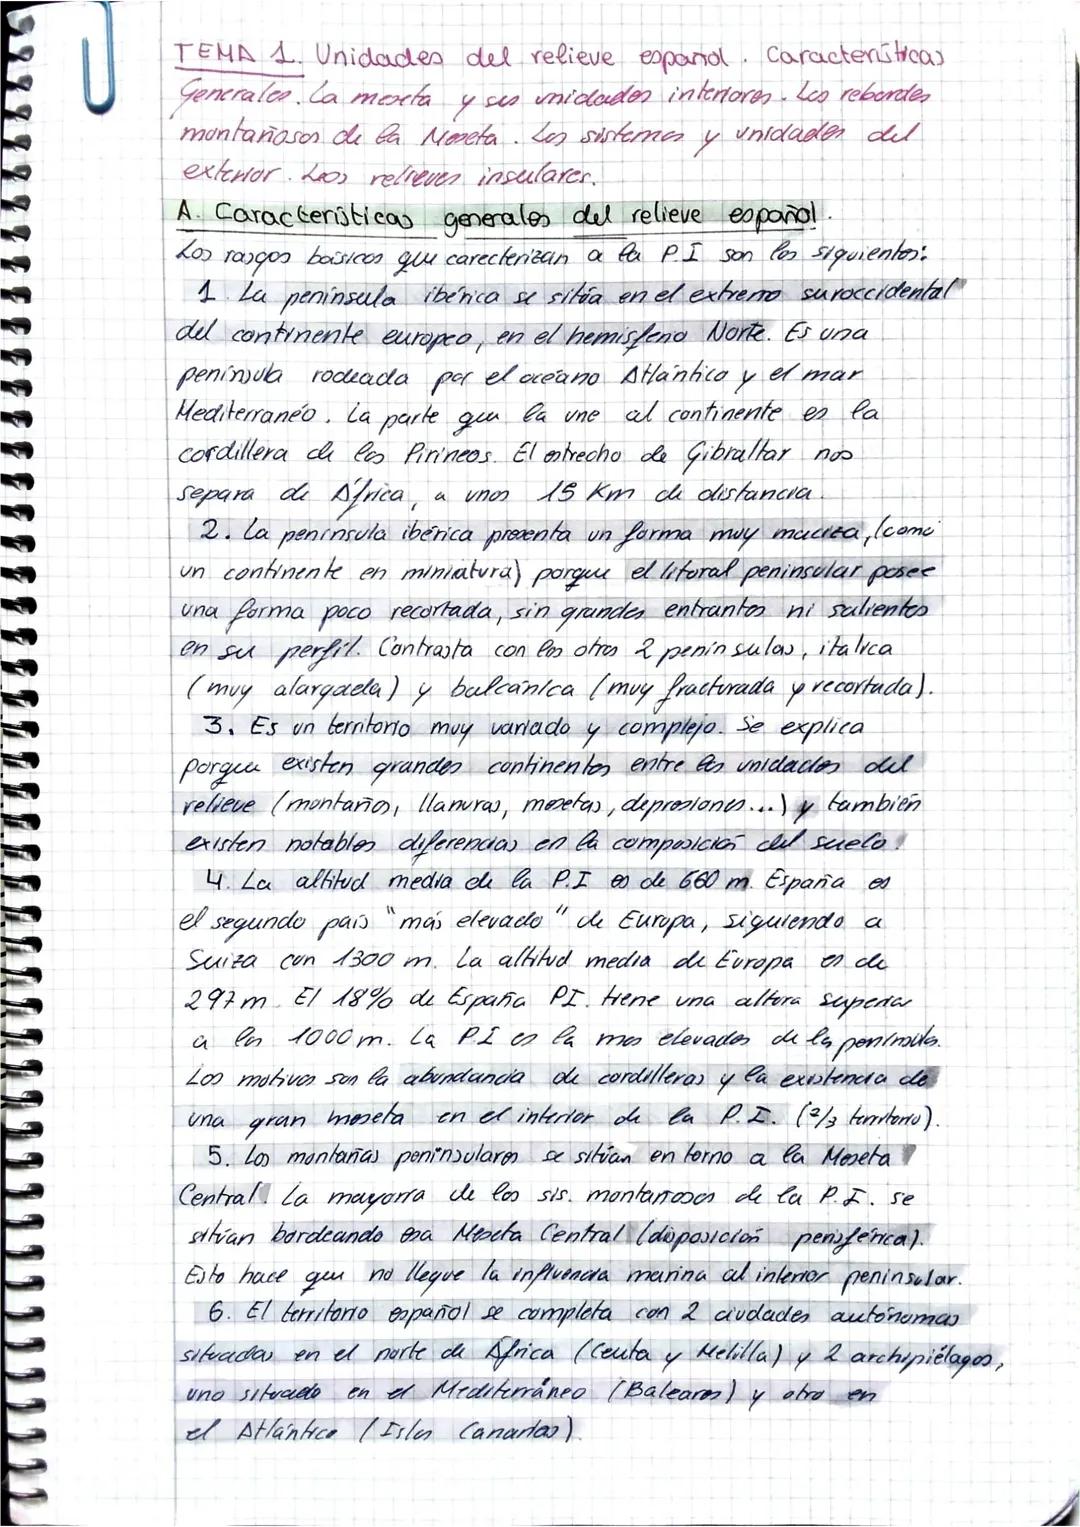 TEMA 1. Unidades del relieve español. Características
Generales. La meseta y sus unidades interiores. Los rebordes
montañosos de la Meseta. Los sistemas y unidades del
exterior. Los relieves insulares.
A. Características generales del relieve español.
Los rasgos básicos que carecterizan a la P.I son los siguientes:
1. La península ibérica se sitúa en el extremo suroccidental
del continente europeo, en el hemisferio Norte. Es una
península rodeada por el océano Atlántico y el mar
Mediterranéo. La parte que la une al continente es la
cordillera de los Pirineos. El estrecho de Gibraltar nos
separa de África, a unos 15 Km de distancia.
2. La península ibérica presenta un forma muy maciza, (como
un continente en miniatura) porque el litoral peninsular posee
una forma poco recortada, sin grandes entrantes ni salientes
en su perfil. Contrasta con los otros 2 penínsulas, italica
(muy alargada) y balcánica (muy fracturada y recortada).
3. Es un territorio muy variado y complejo. Se explica
porque existen grandes continentes entre las unidades del
relieve (montaños, llanuras, mesetas, depresiones...) y también
existen notables diferencias en la composición del suelo.
4. La altitud media de la P.I es de 660 m. España es
el segundo país "más elevado" de Europa, siguiendo a
Suiza con 1300 m. La altitud media de Europa es de
297m. El 18% de España PI. tiene una altura superior
a los 1000 m. La P.I es la mas elevados de las penínsulas.
Los motivos son la abundancia de cordilleras y la existencia de
una gran meseta en el interior de la P.I. (2/3 territorio).
5. Los montañas peninsulares se sitúan en torno a la Meseta
Central. La mayoría de los sis. montañosos de la P.I. se
sitúan bordeando esa Meseta Central (disposición perisférica).
Esto hace que no llegue la influencia marina al interior peninsular.
6. El territorio español se completa con 2 ciudades autónomas
situadas en el norte de África (Ceuta y Melilla) y 2 archipiélagos,
uno situado en el Mediterráneo (Baleares) y otro en
el Atlántico (Islas Canarias).